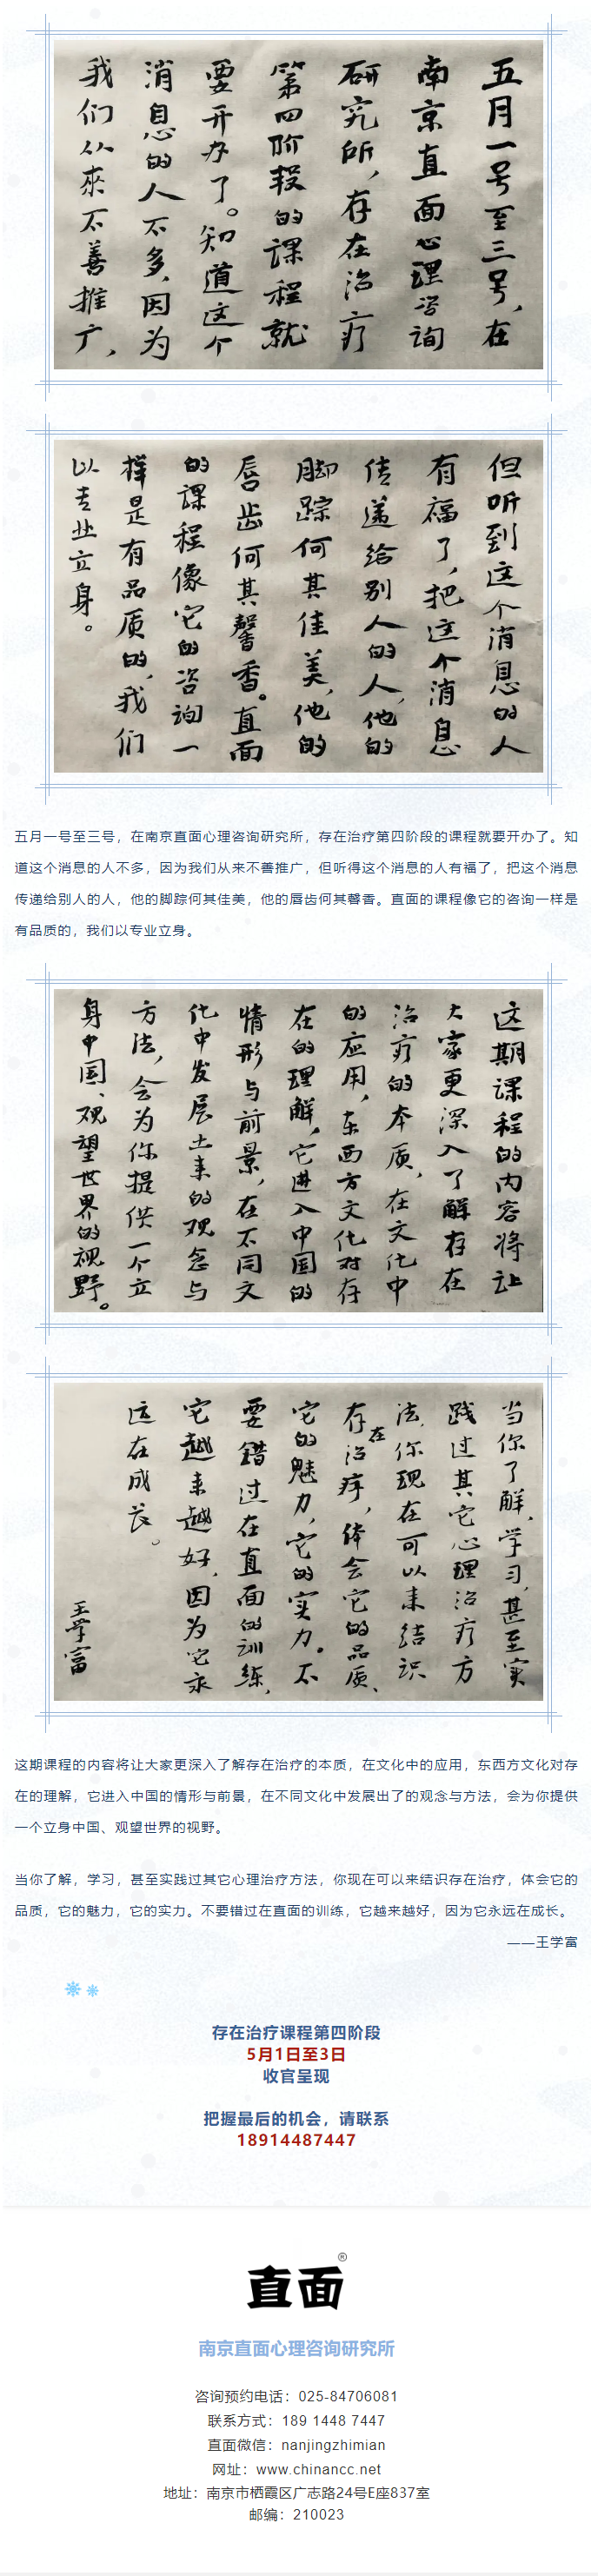 五月一号至三号，在
南京直面心理咨询
研究所，存在治疗
第四阶段的课程就
要开办了。知道这个
消息的人不多，因为
我们从来不善推广，
但听到这个消息的人
有福了，把这个消息
传递给别人的人，他的
脚踪何其佳美，他的
唇齿何其馨香。直面
的课程像它的咨询一
样是有品质的，我们
以专业立身。
五月一号至三号，在南京直面心理咨询研究所，存在治疗第四阶段的课程就要开办了。知
道这个消息的人不多，因为我们从来不善推广，但听得这个消息的人有福了，把这个消息
传递给别人的人，他的脚踪何其佳美，他的唇齿何其馨香。直面的课程像它的咨询一样是
有品质的，我们以专业立身。
这期课程的内容将让
大家更深入了解存在
治疗的本质，在文化中
的应用，东西方文化对存
在的理解，它进入中国的
情形与前景，在不同文
化中发展出来的观念与
方法，会为你提供一个立
身中国、观望世界的视野。
当你了解，学习，甚至实
践过其它心理治疗方
法，你现在可以来结识
存在治疗，体会它的品质、
它的魅力，它的实力。不
要错过在直面的训练，
它越来越好，因为它永
远在成长。
王学富
这期课程的内容将让大家更深入了解存在治疗的本质，在文化中的应用，东西方文化对存
在的理解，它进入中国的情形与前景，在不同文化中发展出了的观念与方法，会为你提供
一个立身中国、观望世界的视野。
当你了解，学习，甚至实践过其它心理治疗方法，你现在可以来结识存在治疗，体会它的
品质，它的魅力，它的实力。不要错过在直面的训练，它越来越好，因为它永远在成长。
——王学富
存在治疗课程第四阶段
5月1日至3日
收官呈现
把握最后的机会，请联系
18914487447
直面®
南京直面心理咨询研究所
咨询预约电话：025-84706081
联系方式：189 1448 7447
直面微信：nanjingzhimian
网址：www.chinancc.net
地址：南京市栖霞区广志路24号E座837室
邮编：210023